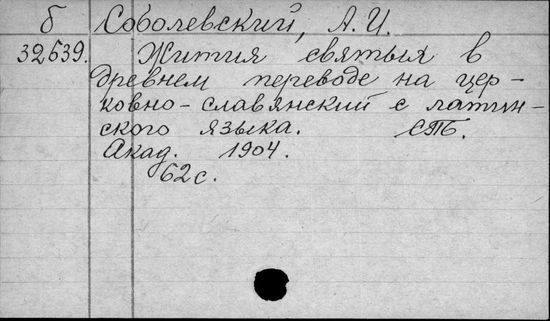 б Соболевский, А.И.
32639. Жития святыя в
древнем переводе на цер-
ковно-славянский с латин-
ского языка. СПБ.
Акад. 1904.
62 с.